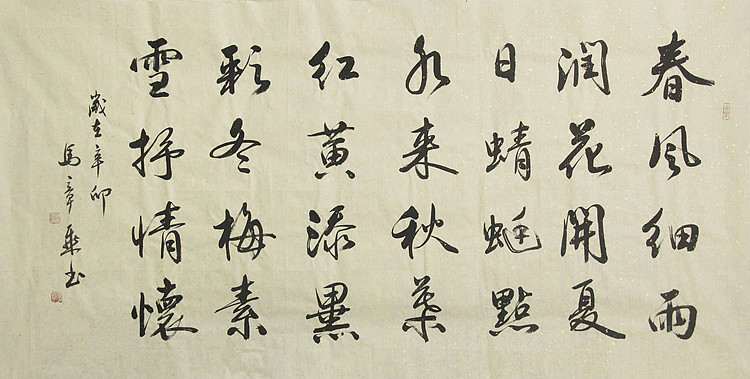 春风細雨
潤花開夏
日蜻蜓點
水来秋葉
红黄添墨
彩冬梅素
雪抒情懷
歲在辛卯
馬章乘书